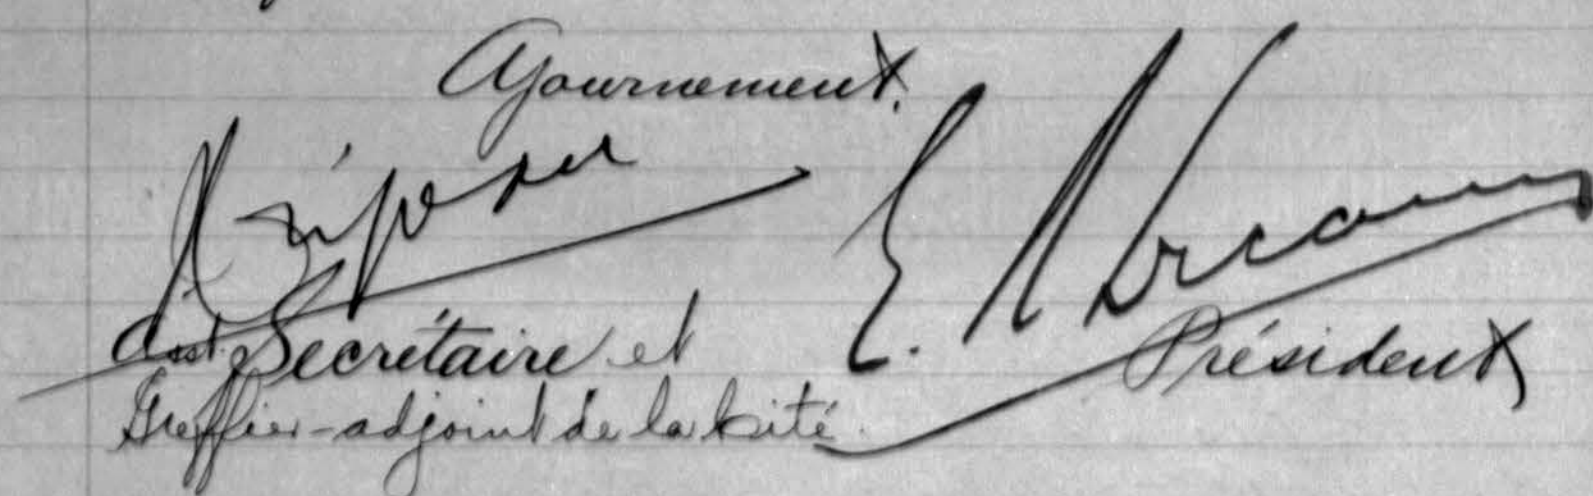 Ajournement.
Asst. Secrétaire et
Greffier-adjoint de la Cité.
Président